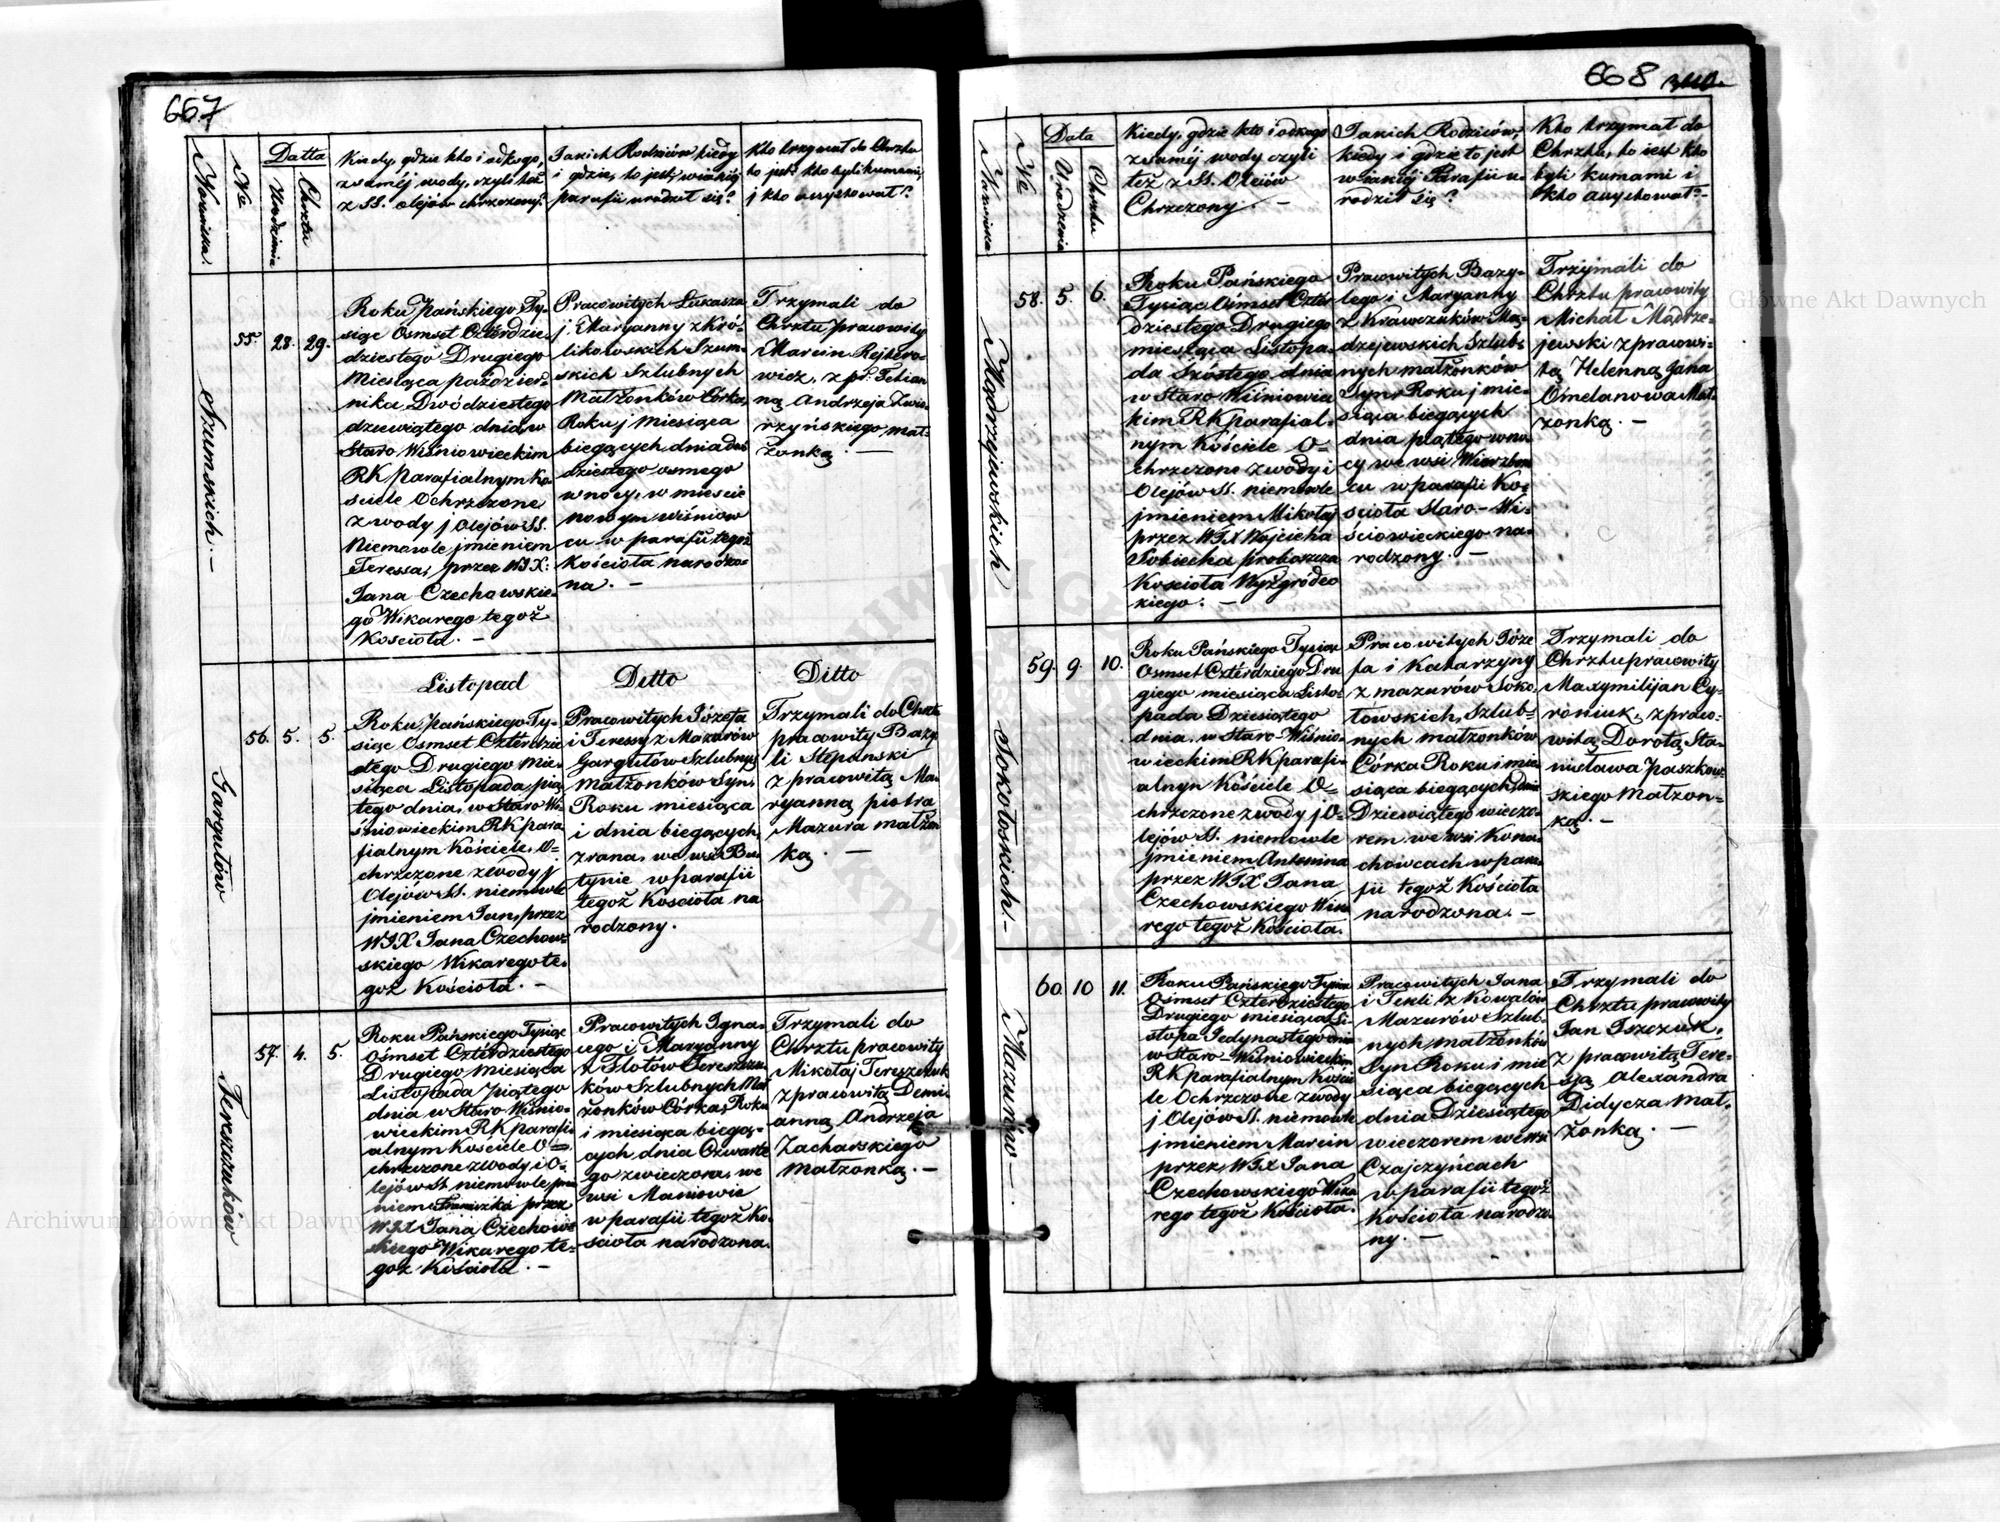 667
Nazwiska.
Nro
Datta
Urodzenia
Chrztu
Kiedy, gdzie kto i odkogo,
z samėj wody, czyli też
z SS. olejów chrzczony?
Jakich Rodziców kiedy
i gdzie, to jest w jakiéj
parafii urodził się?
Kto trzymał do Chrztu
to jest kto byli kumami,
j kto assystował?
Szumskich. –
55.
28.
29.
Roku Pańskiego Ty-
siąc Osmset Czterdzie-
dziestego Drugiego
Miesiąca paździer-
nika, Dwódziestego
dziewiątego dnia, w
Staro Wiśniowieckim
RK parafialnym Ko
sciele Ochrzczone
z wody j Olejów SS.
Niemowle jmieniem
Teressa, przez WJX:
Jana Czechowskie-
go Wikarego tegoż
Kosciola. –
Pracowitych Łukasza
j Maryanny z Kró-
likowskich Szum-
skich Szlubnych
Małżonków Córka,
Roku j Miesiąca
biegących dnia dwó
dziestego osmego
w nocy, w miescie
nowym wiśniow
cu w parafii tegoż
Kościola narodzo-
na. –
Trzymali do
Chrztu pracowity
Marcin Rejtero-
wicz, z pr: Tekian
ną Andrzeja Zwie-
rzyńskiego, mał-
żonką. –
Listopad
Ditto
Ditto
Gargułów
56.
5.
5.
Roku Pańskiego Ty-
siąc Osmset Czterdzie
stego Drugiego mie-
siąca Listopada, pią
tego dnia, w Staro Wi-
śniowieckim RK para
fialnym Kościele, O=
chrzczone z wody j
Olejów SS. niemowle
jmieniem Jan, przez
WJX Jana Czechow-
skiego Wikarego te-
goż Kościola. –
Pracowitych Józefa
i Teressy z Mazurów
Gargułów Szlubnych
małżonków Syn,
Roku miesiąca
i dnia biegących,
z rana, we wsi Bu
tynie w parafii
tegoż Kosciola na
rodzony.
Trzymali do Chrztu
pracowity Bazy
li Stepanski
z pracowitą Ma-
ryanną piotra
Mazura małżon
ką. –
Tereszczuków
57.
4.
5.
Roku Pańskiego Tysiąc
Ośmset Czterdziestego
Drugiego Miesiąca
Listopada Piątego
dnia w Staro Wiśnio-
wieckim RK parafi-
alnym Kościele O=
chrzczone z wody i O-
lejów SS niemowle jmie
niem Franciszka przez
WJX Jana Czechow-
skiego Wikarego te-
goż Kościola. –
Pracowitych Igna-
cego i Maryanny
z Flotów Tereszczu-
ków Szlubnych Mał
żonków Córka, Roku
i miesiąca biegą-
cych, dnia Czwarte
go z wieczora, we
wsi Maniowie
w parafii tegoż Ko-
ściola narodzona.
Trzymali do
Chrztu pracowity
Mikołaj Tereszczuk
z pracowitą Demi-
anną Andrzeja
Zacharskiego
Małżonką. –
668
Nazwiska
Nro
Data
Urodzenia
Chrztu
Kiedy, gdzie kto i odkogo
z samėj wody czyli
też z SS. Olejów
Chrzczony. –
Jakich Rodziców,
kiedy i gdzie to jest
w jakiéj Parafii u-
rodził się?
Kto trzymał do
Chrztu, to jest kto
byli kumami i
kto assystował? –
Mądrzejewskich
58.
5.
6.
Roku Pańskiego
Tysiąc Ośmset Czter
dziestego Drugiego
miesiąca Listopa-
da Szóstego dnia
w Staro Wiśniowiec
kim RK parafial-
nym Kościele O=
chrzczone z wody i
Olejów SS. niemowle
jmieniem Mikołaj
przez WJX Wojciecha
Sobiecha proboszcza
Kosciola Wyżgródec
kiego. –
Pracowitych Bazy-
lego i Maryanny
z Krawczuków Mą-
drzejewskich Szlub-
nych małżonków
Syn, Roku j mie-
siąca biegących
dnia piątego w no
cy we wsi Wierzbow
cu w parafii Ko-
ściola Staro-Wi-
śniowieckiego na-
rodzony. –
Trzymali do
Chrztu pracowity
Michał Mądrze-
jewski z pracowi-
tą Helenną Jana
Omelanowa Mał-
żonką. –
Sokołoskich. –
59.
9.
10.
Roku Pańskiego Tysiąc
Osmset Czterdziego Dru
giego miesiąca Listo-
pada Dziesiątego
dnia w Staro-Wiśnio-
wieckim RK parafi-
alnym Kościele O=
chrzczone z wody j O-
lejów SS. niemowle
jmieniem Antonina
przez WJX Jana
Czechowskiego Wika
rego tegoż Kościola.
Pracowitych Józe
fa i Katarzyny
z mazurów Soko-
łowskich, Szlub-
nych małżonków
Córka Roku i mie-
siąca biegących, dnia
Dziewiątego wieczo-
rem we wsi Kona-
chowcach w para-
fii tegoż Kościola
narodzona. –
Trzymali do
Chrztu pracowity
Maxymilijan Cy-
roniuk, z praco-
witą Dorotą Sta-
nisława Paszkow-
skiego Małżon-
ką. –
Mazurów –
60.
10
11.
Roku Pańskiego Tysiąc
Ośmset Czterdziestego
Drugiego miesiąca Li-
stopa Jedynastego dnia
w Staro-Wiśniowieckim
RK parafialnym Kości
le Ochrzczone z wody
j Olejów SS. niemowle
jmieniem Marcin
przez WJX Jana
Czechowskiego Wika
rego tegoż Kościola.
Pracowitych Jana
i Tekli z Kowalów
Mazurów Szlub-
nych, małżonków
Syn Roku i mie
siąca biegących
dnia Dziesiątego
wieczorem we wsi
Czajczyńcach
w parafii tegoż
Kościola narodzo-
ny. –
Trzymali do
Chrztu pracowity
Jan Iszczuk,
z pracowitą Tere-
są Alexandra
Didycza mał-
żonką. –
Archiwum Główne Akt Dawnych
Archiwum Główne Akt Dawnych